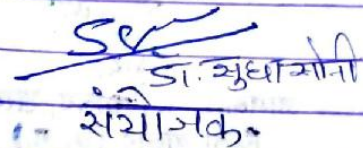 डा. सुधा सोनी
संयोजक